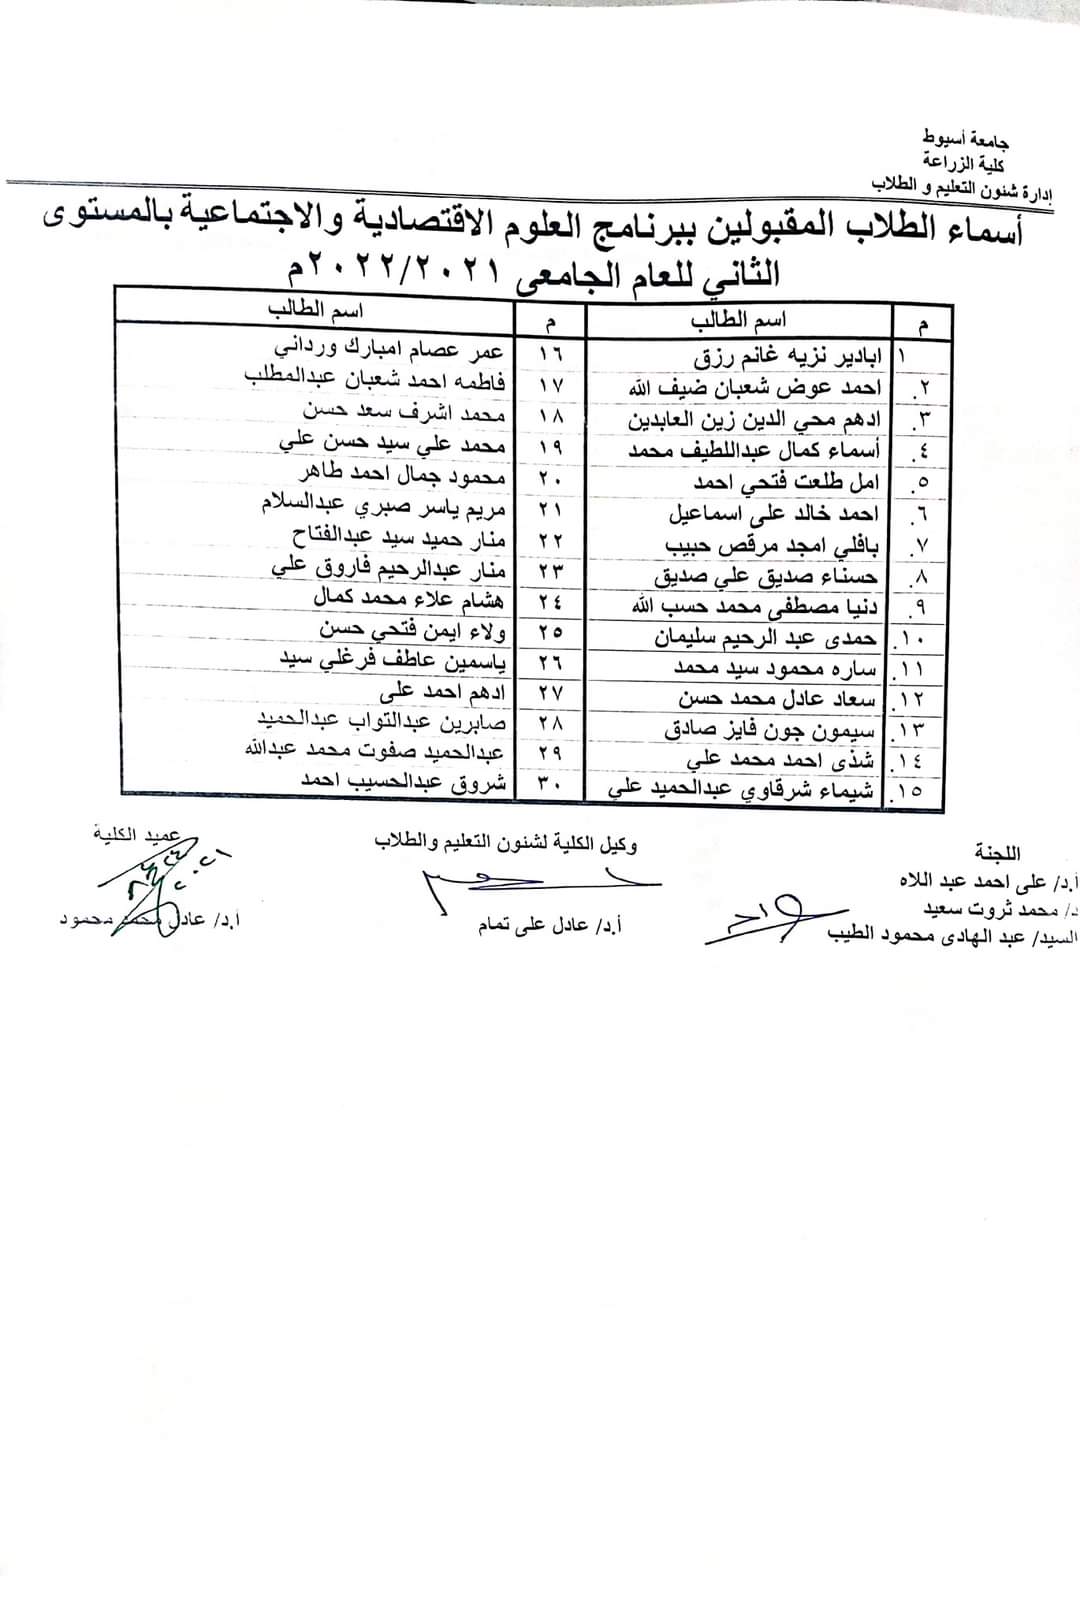 جامعة أسيوط
كلية الزراعة
إدارة شئون التعليم و الطلاب
أسماء الطلاب المقبولين ببرنامج العلوم الاقتصادية والاجتماعية بالمستوى
الثاني للعام الجامعى ٢٠٢٢/٢٠٢١م
م اسم الطالب م اسم الطالب
١ ابادير نزيه غانم رزق ١٦ عمر عصام امبارك ورداني
٢. احمد عوض شعبان ضيف الله ١٧ فاطمه احمد شعبان عبدالمطلب
٣. ادهم محي الدين زين العابدين ١٨ محمد اشرف سعد حسن
٤. أسماء كمال عبداللطيف محمد ١٩ محمد علي سيد حسن علي
٥. امل طلعت فتحي احمد ٢٠ محمود جمال احمد طاهر
٦. احمد خالد على اسماعيل ٢١ مريم ياسر صبري عبدالسلام
٧. بافلي امجد مرقص حبيب ٢٢ منار حميد سيد عبدالفتاح
٨. حسناء صديق علي صديق ٢٣ منار عبدالرحيم فاروق علي
٩. دنيا مصطفى محمد حسب الله ٢٤ هشام علاء محمد كمال
١٠. حمدى عبد الرحيم سليمان ٢٥ ولاء ايمن فتحي حسن
١١. ساره محمود سيد محمد ٢٦ ياسمين عاطف فرغلي سيد
١٢. سعاد عادل محمد حسن ٢٧ ادهم احمد على
١٣. سيمون جون فايز صادق ٢٨ صابرين عبدالتواب عبدالحميد
١٤. شذى احمد محمد علي ٢٩ عبدالحميد صفوت محمد عبدالله
١٥. شيماء شرقاوي عبدالحميد علي ٣٠ شروق عبدالحسيب احمد
اللجنة وكيل الكلية لشئون التعليم والطلاب عميد الكلية
أ.د/ على احمد عبد اللاه
د/ محمد ثروت سعيد أ.د/ عادل على تمام أ.د/ عادل محمد محمود
السيد/ عبد الهادى محمود الطيب